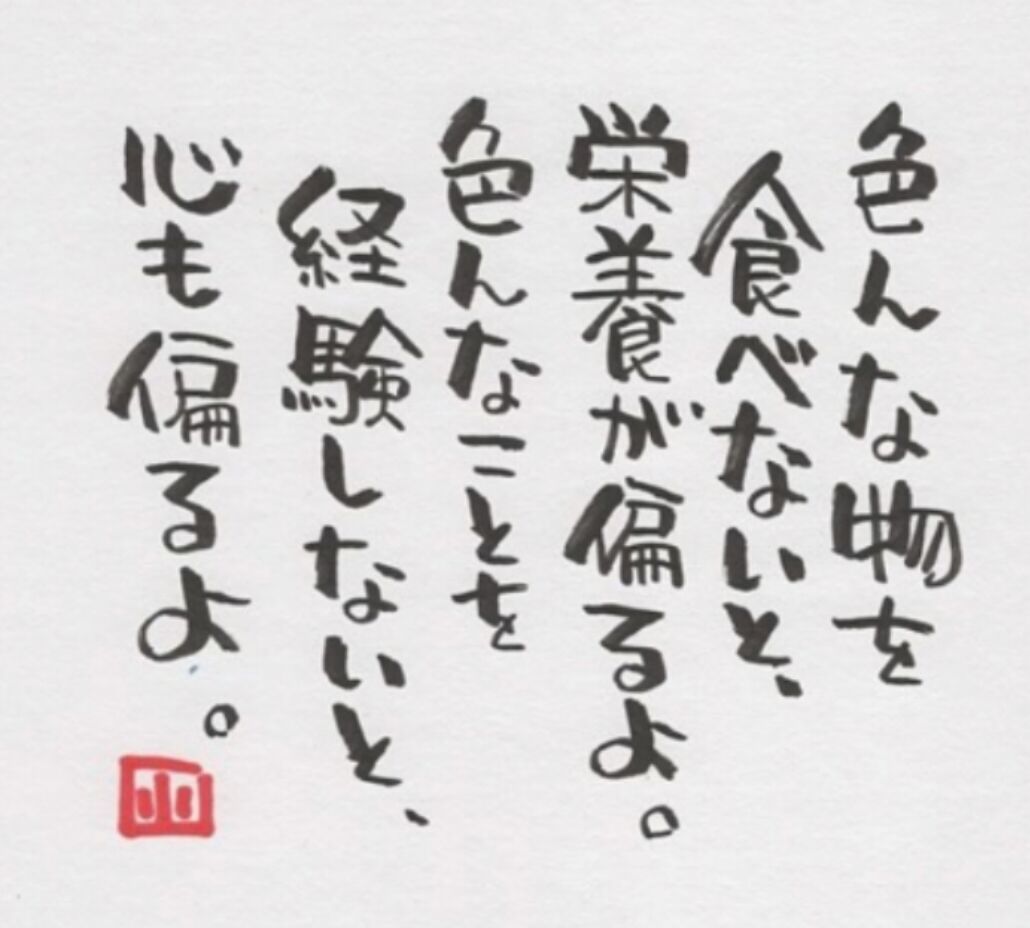 色んな物を
食べないと、
栄養が偏るよ。
色んなことを
経験しないと、
心も偏るよ。
山